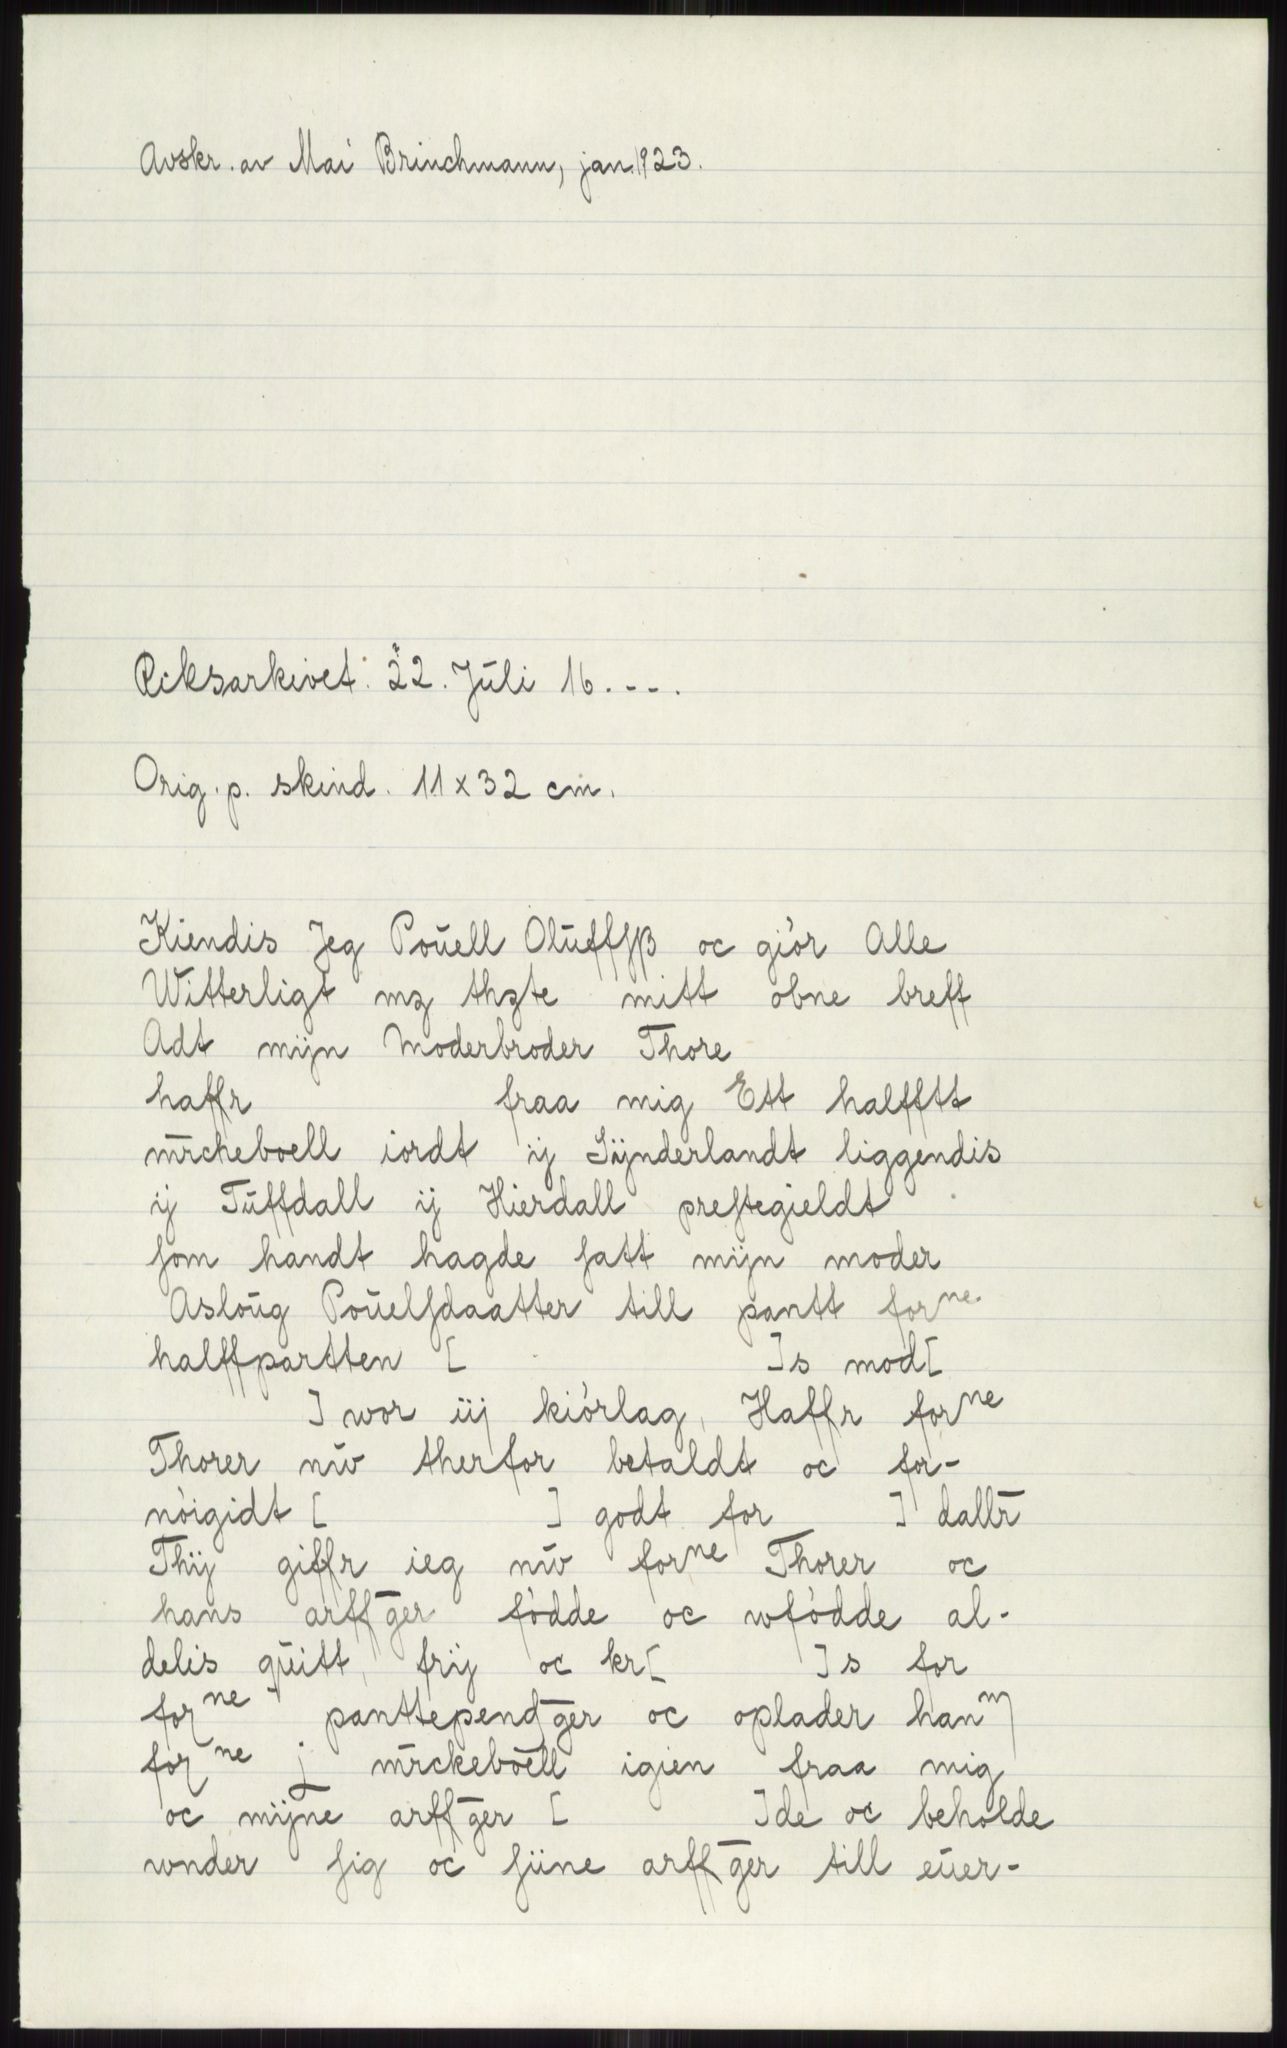 Avskr. av Mai Brinchmann, jan. 1923.
Riksarkivet. 22. Juli 16. - - -.
Orig. p. skind. 11 x 32 cm.
Kiendis Jeg Pouell Oluffsß oc giör Alle
Witterligt mz thzte mitt obne breff
Adt mijn Moderbroder Thore
haffr fraa mig Ett halfftt
mrckeboell iordt ij Sijnderlandt liggendis
ij Tuffdall ij Hierdall prestegieldt
som handt hagde satt mijn moder
Asloug Pouelsdaatter till pantt forne
halffpartten [ ]s mod[
] wor iij kiörlag, Haffr forne
Thorer nw therfor betaldt oc for-
nöigidt [ ] godt for ] dallr
Thij giffr ieg nw forne Thorer oc
hans arffger födde oc wfödde al-
delis quitt, frij oc kr[ ]s for
forne panttependger oc oplader hanm
forne j mrckeboell igien fraa mig
oc mijne arffger [ ]de oc beholde
wnder sig oc siine arffger till euer-